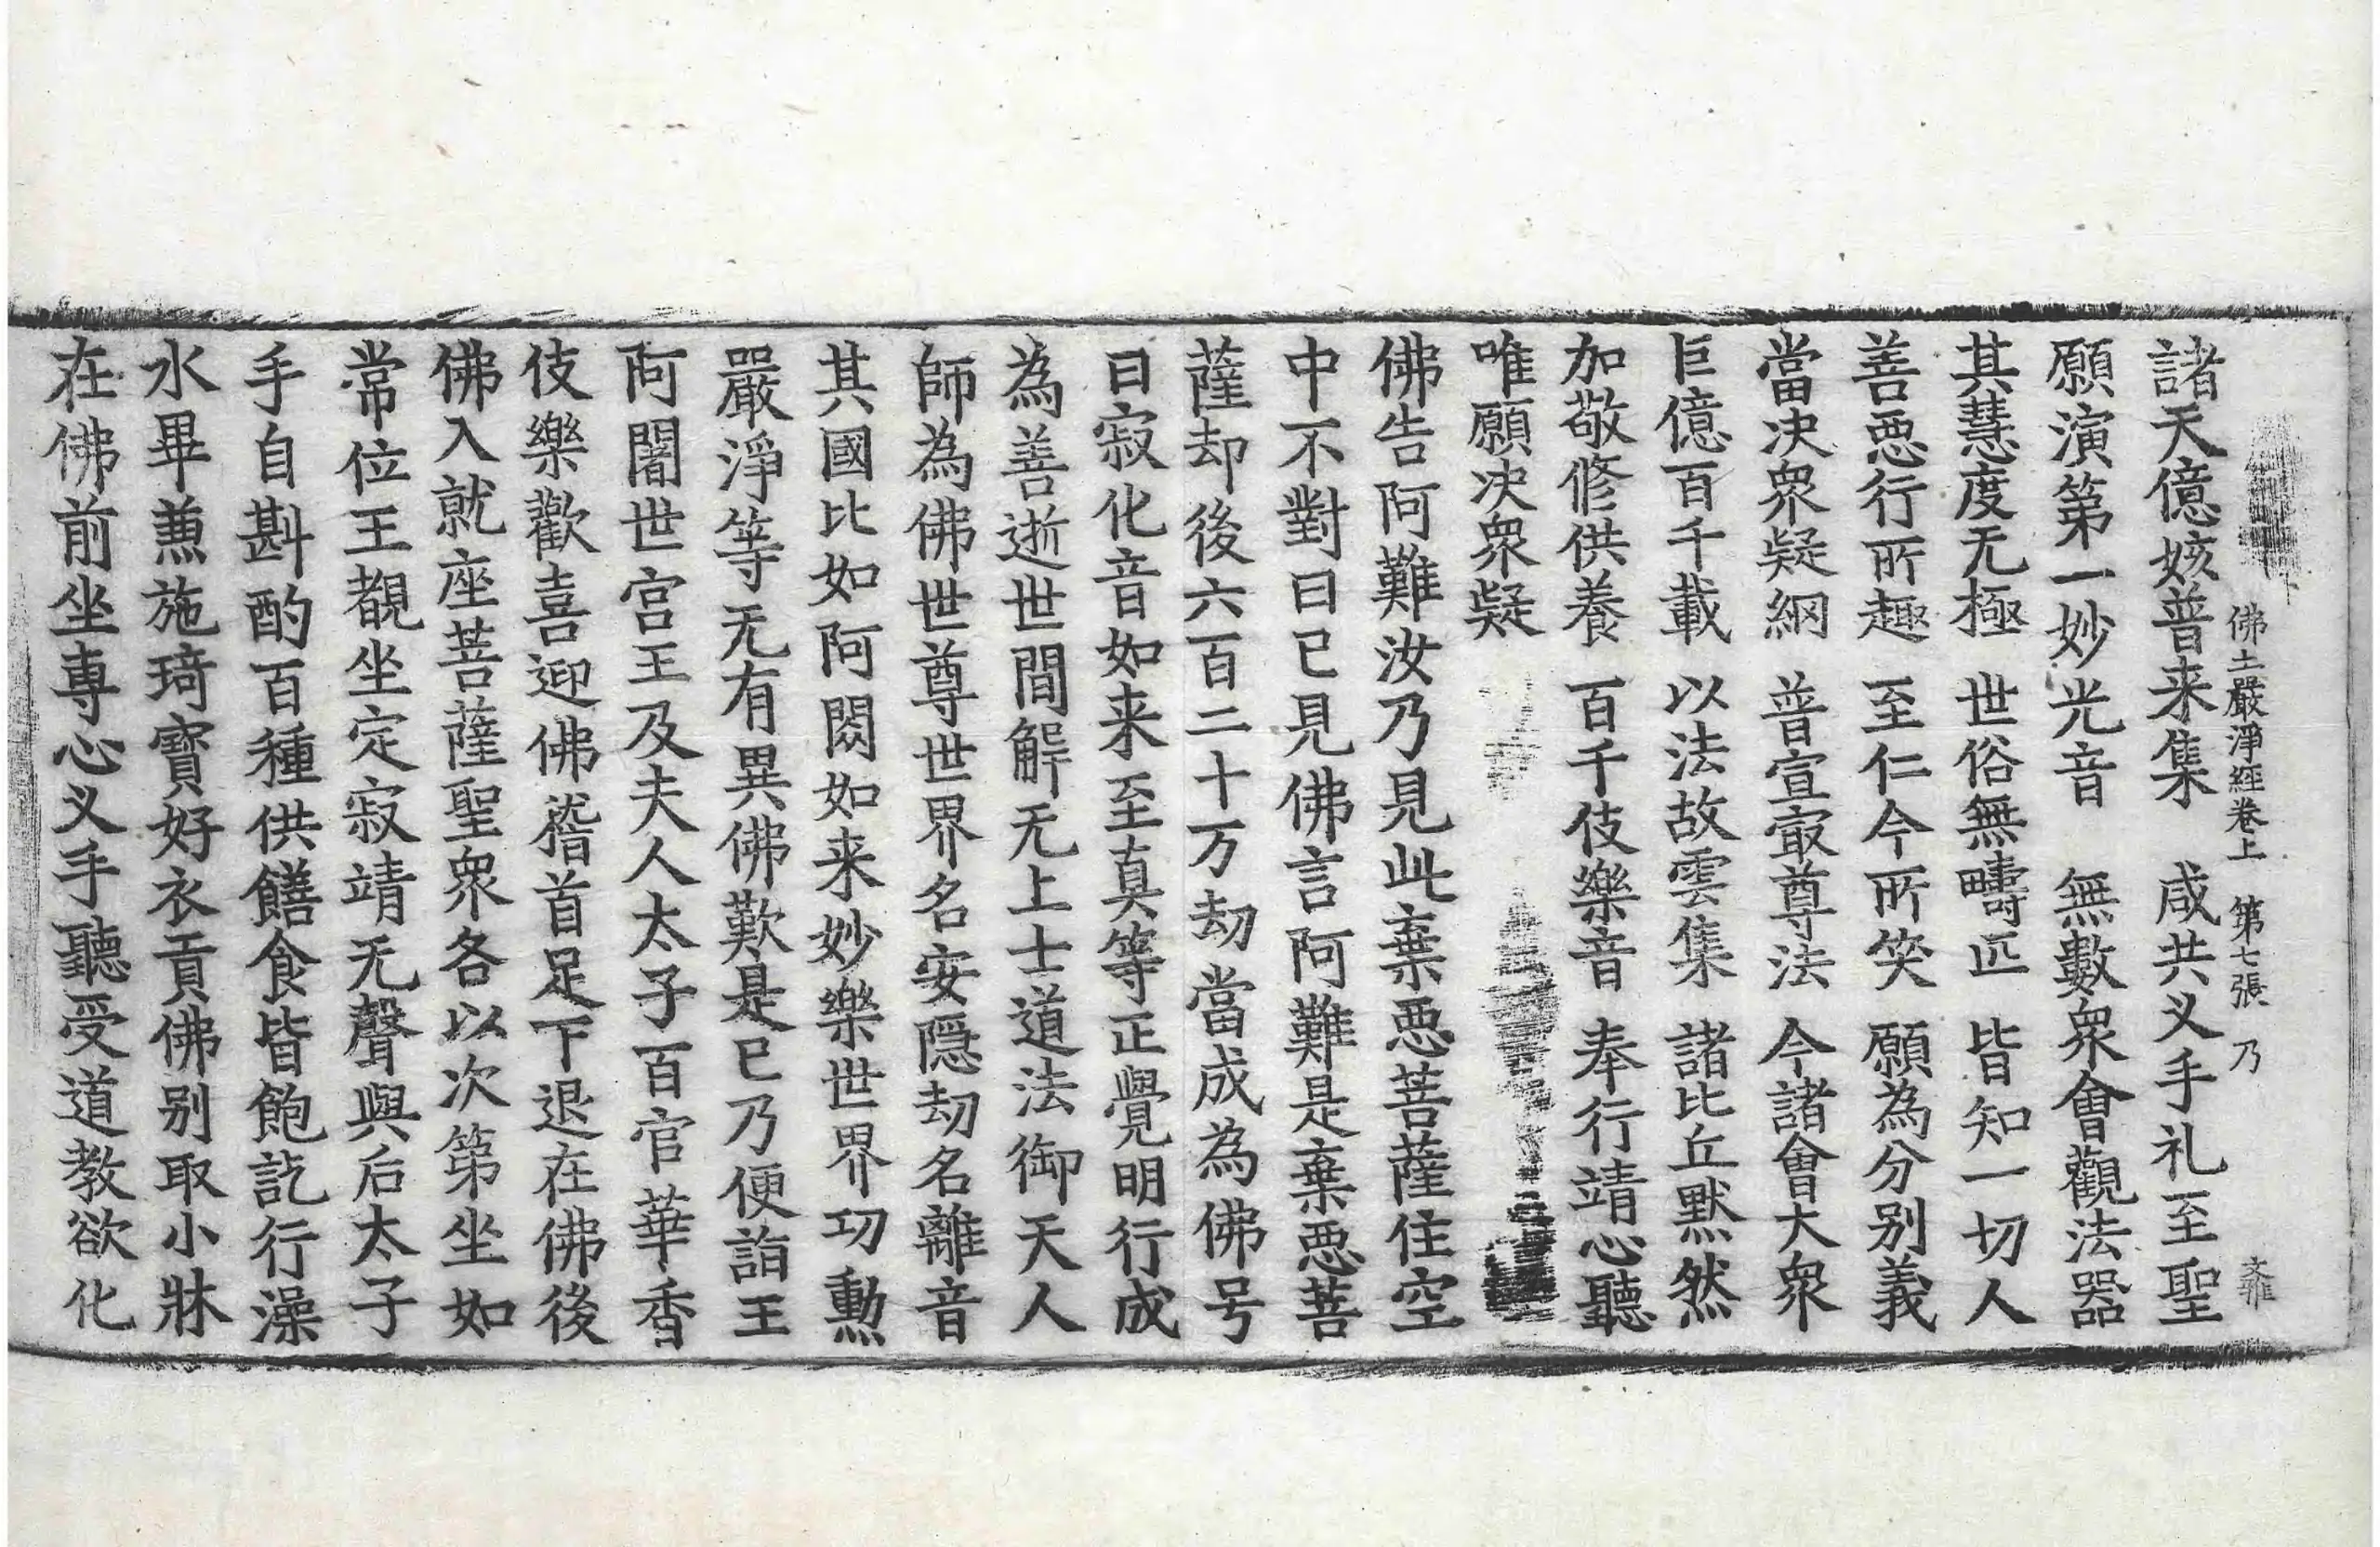 佛土嚴淨經卷上 第七張 乃
諸天億姟普来集 咸共义手礼至聖
願演第一妙光音 無數衆會觀法器
其慧度无極 世俗無疇匹 皆知一切人
善惡行所趣 至仁今所笑 願為分别義
當决衆疑網 普宣㝡尊法 今諸會大衆
巨億百千載 以法故雲集 諸比丘默然
加敬修供養 百千伎樂音 奉行靖心聽
唯願决衆疑
佛告阿難汝乃見此棄惡菩薩住空
中不對曰已見佛言阿難是棄惡菩
薩却後六百二十万劫當成為佛号
曰寂化音如来至真等正覺明行成
為善逝世間解无上士道法御天人
師為佛世尊世界名安隱劫名離音
其國比如阿閦如来妙樂世界功勳
嚴淨等无有異佛歎是已乃便詣王
阿闍世宫王及夫人太子百官華香
伎樂歡喜迎佛稽首足下退在佛後
佛入就座菩薩聖衆各以次第坐如
常位王覩坐定寂靖无聲與后太子
手自斟酌百種供饍食皆飽訖行澡
水畢兼施琦寶好衣貢佛别取小牀
在佛前坐專心义手聽受道教欲化